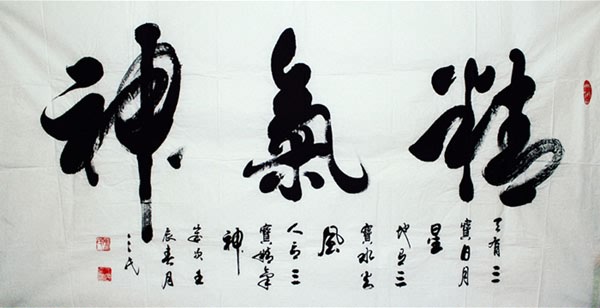 精氣神
天有三
寶日月
星
地有三
寶水火
風
人有三
寶精氣
神
歲次壬
辰春月